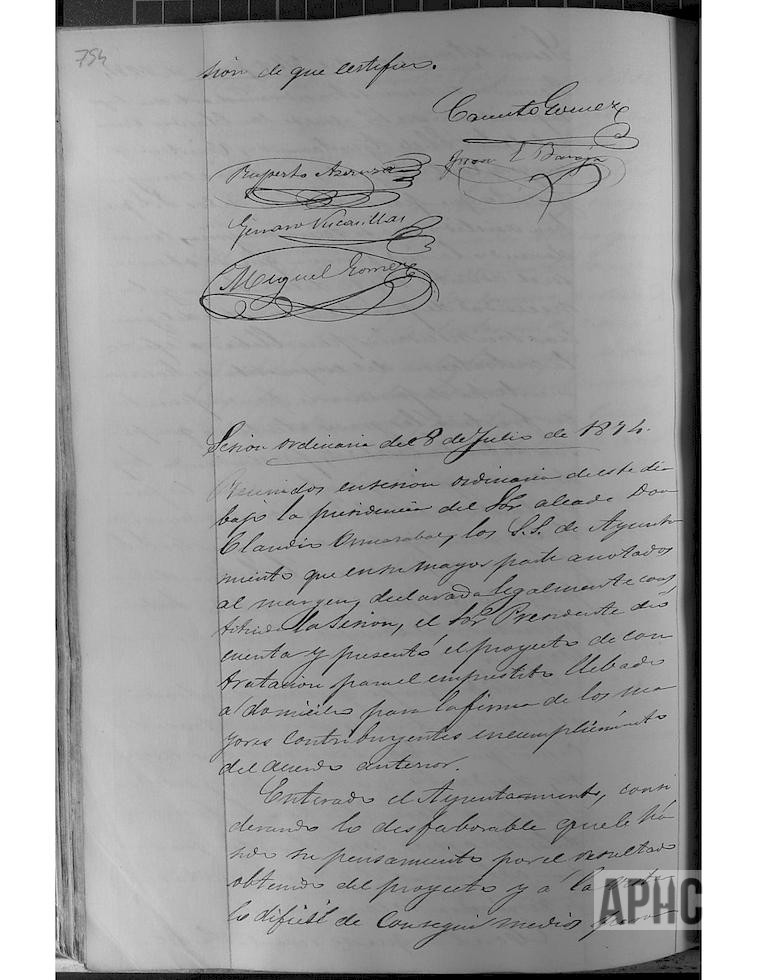 754
sion de que certifico.
Canuto Gomez
Juan L Barajа
Ruperto
Genaro Vicasillas
Miguel Gomez
Sesion ordinaria del 8 de Julio de 1894.
Reunidos en sesion ordinaria de este dia
bajo la presidencia del Sor alcade Don
Claudio los S.S. de Ayunta
miento que en su mayor parte anotados
al margen, declarada legalmente cons
tituida la Sesion, el Sor Presidente dió
cuenta y presentó el proyecto de con
tratacion para el emprestito llebado
a domicilio para la firma de los ma
yores contribuyentes en cumplimiento
del acuerdo anterior.
Enterado el Ayuntamiento, consi
derando lo desfaborable que le há
sido su pensamiento por el resultado
obtenido del proyecto y á la
lo dificil de conseguir medio
APHC